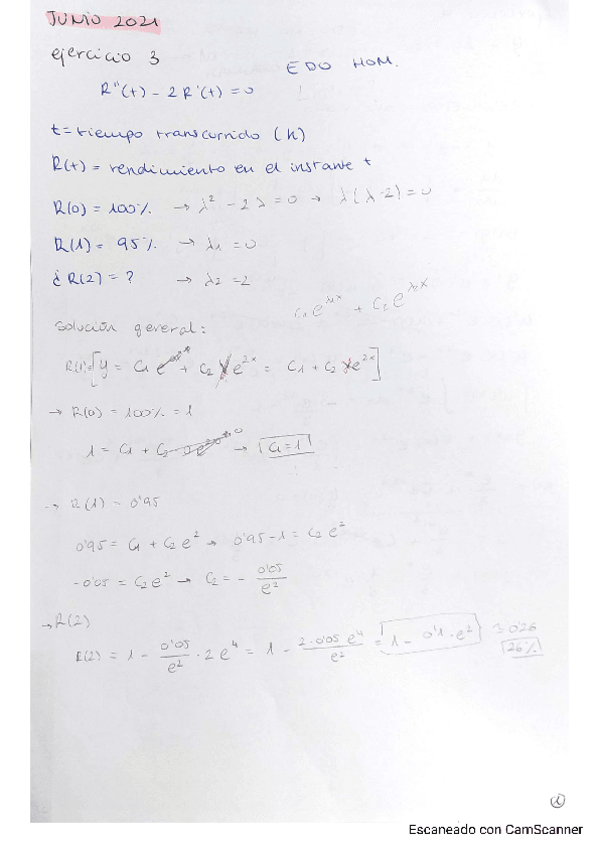 JUNIO 2021
ejercicio 3
EDO HOM.
R''(t) - 2R'(t) = 0
t = tiempo transcurrido (h)
R(t) = rendimiento en el instante t
R(0) = 100% → λ² - 2λ = 0 → λ(λ-2) = 0
R(1) = 95% → λ₁ = 0
¿R(2) = ? → λ₂ = 2
C₁e^λ₁x + C₂e^λ₂x
solución general:
R(t)=[y = C₁ e^0x + C₂ x e^2x = C₁ + C₂ x e^2x]
→ R(0) = 100% = 1
1 = C₁ + C₂ · 0 e^2·0 → C₁ = 1
→ R(1) = 0'95
0'95 = C₁ + C₂ e² → 0'95 - 1 = C₂ e²
-0'05 = C₂ e² → C₂ = - 0'05/e²
→ R(2)
R(2) = 1 - 0'05/e² · 2 e⁴ = 1 - 2·0'05 e⁴/e² = 1 - 0'1 · e²
26%
Escaneado con CamScanner